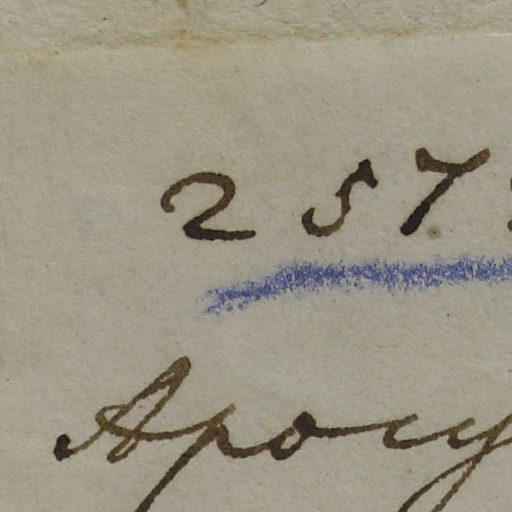 257
Apocy